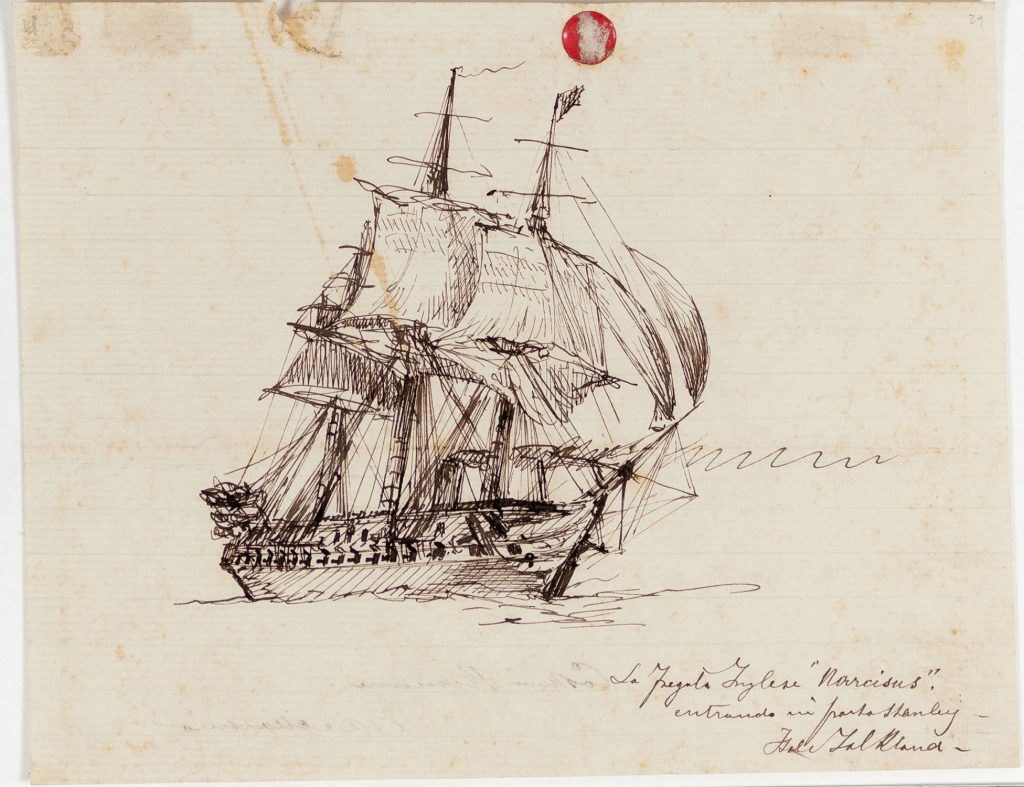 24
La Fregata Inglese "Narcisus".
entrando in porto Stanley -
Isole Falkland -